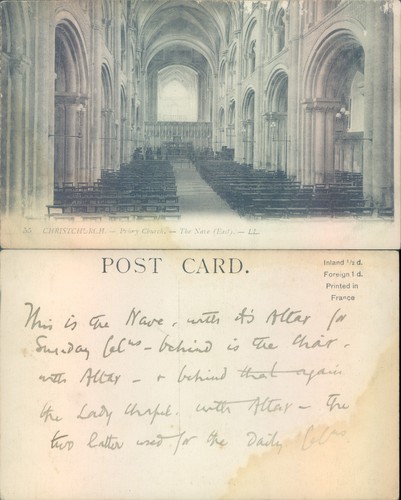 55 CHRISTCHURCH. — Priory Church. — The Nave (East). — LL.
POST CARD.
Inland ½ d.
Foreign 1 d.
Printed in
France
This is the Nave, with its Altar for
Sunday Cel^ns – behind is the Choir,
with Altar – & behind that again
the Lady Chapel. with Altar – The
two latter used for the Daily Cel^ns